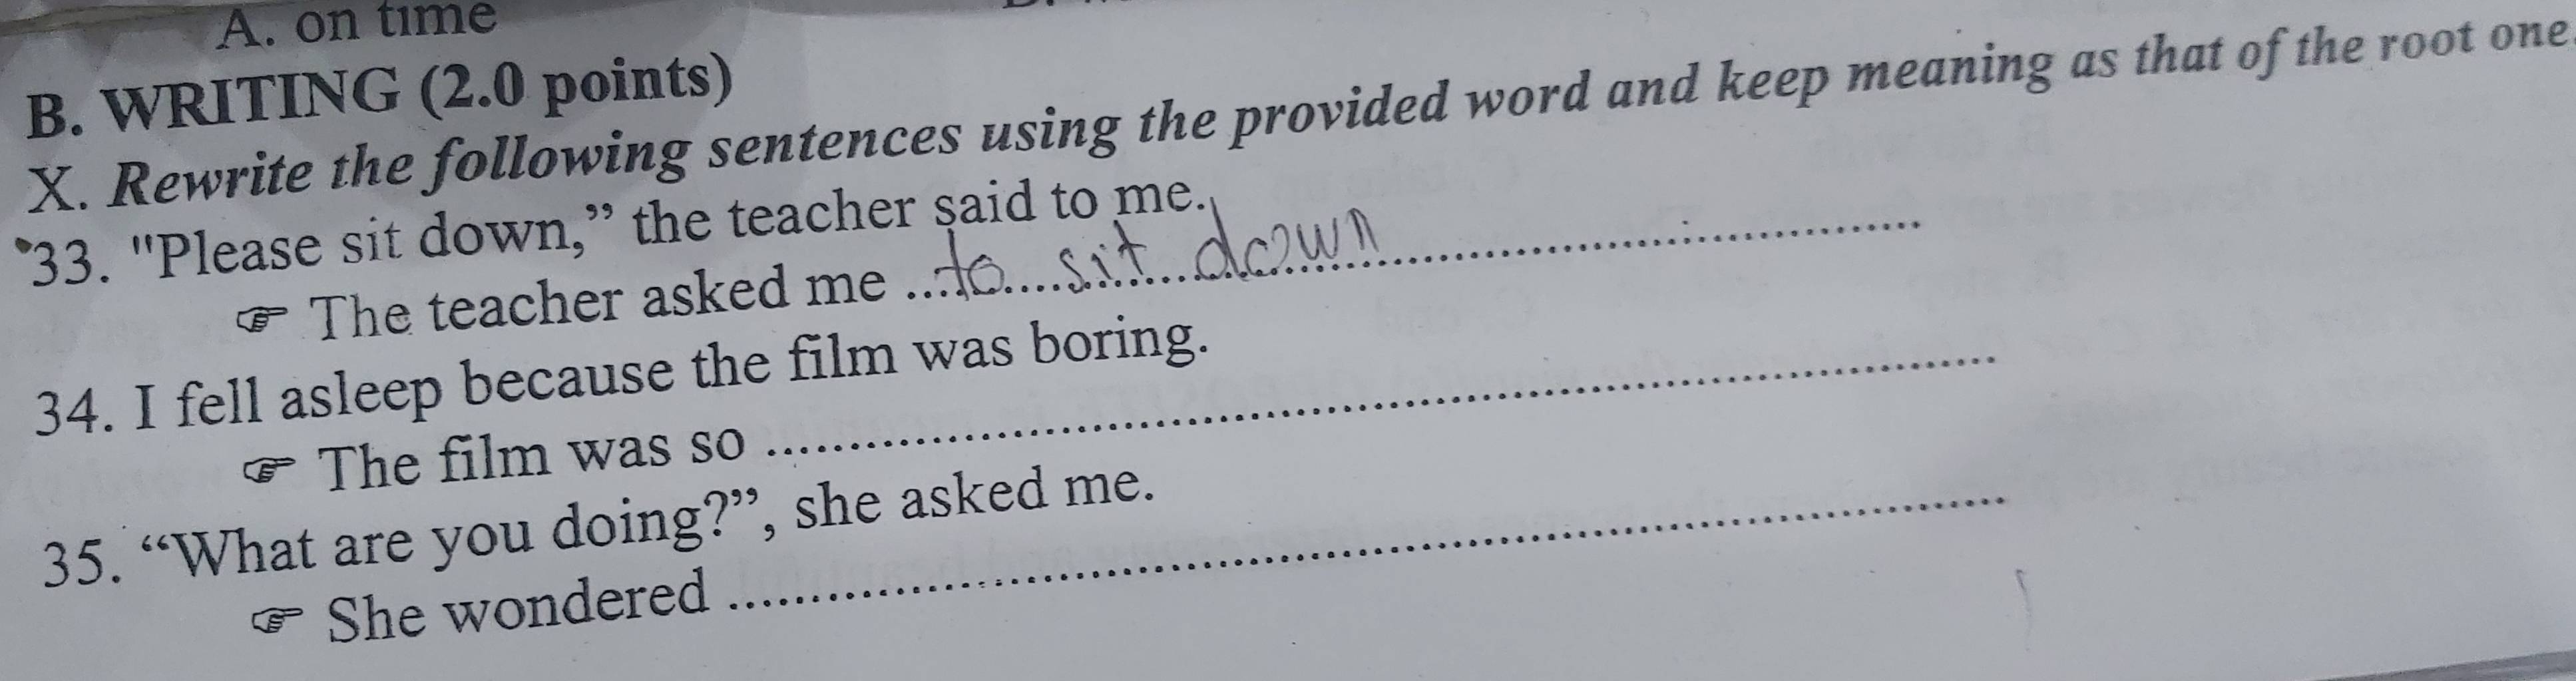 A. on time
B. WRITING (2.0 points)
X. Rewrite the following sentences using the provided word and keep meaning as that of the root one.
33. "Please sit down,” the teacher said to me.
☞ The teacher asked me ...to....sit...down..............................
34. I fell asleep because the film was boring.
☞ The film was so ..........................................................................
35. “What are you doing?”, she asked me.
☞ She wondered ..........................................................................